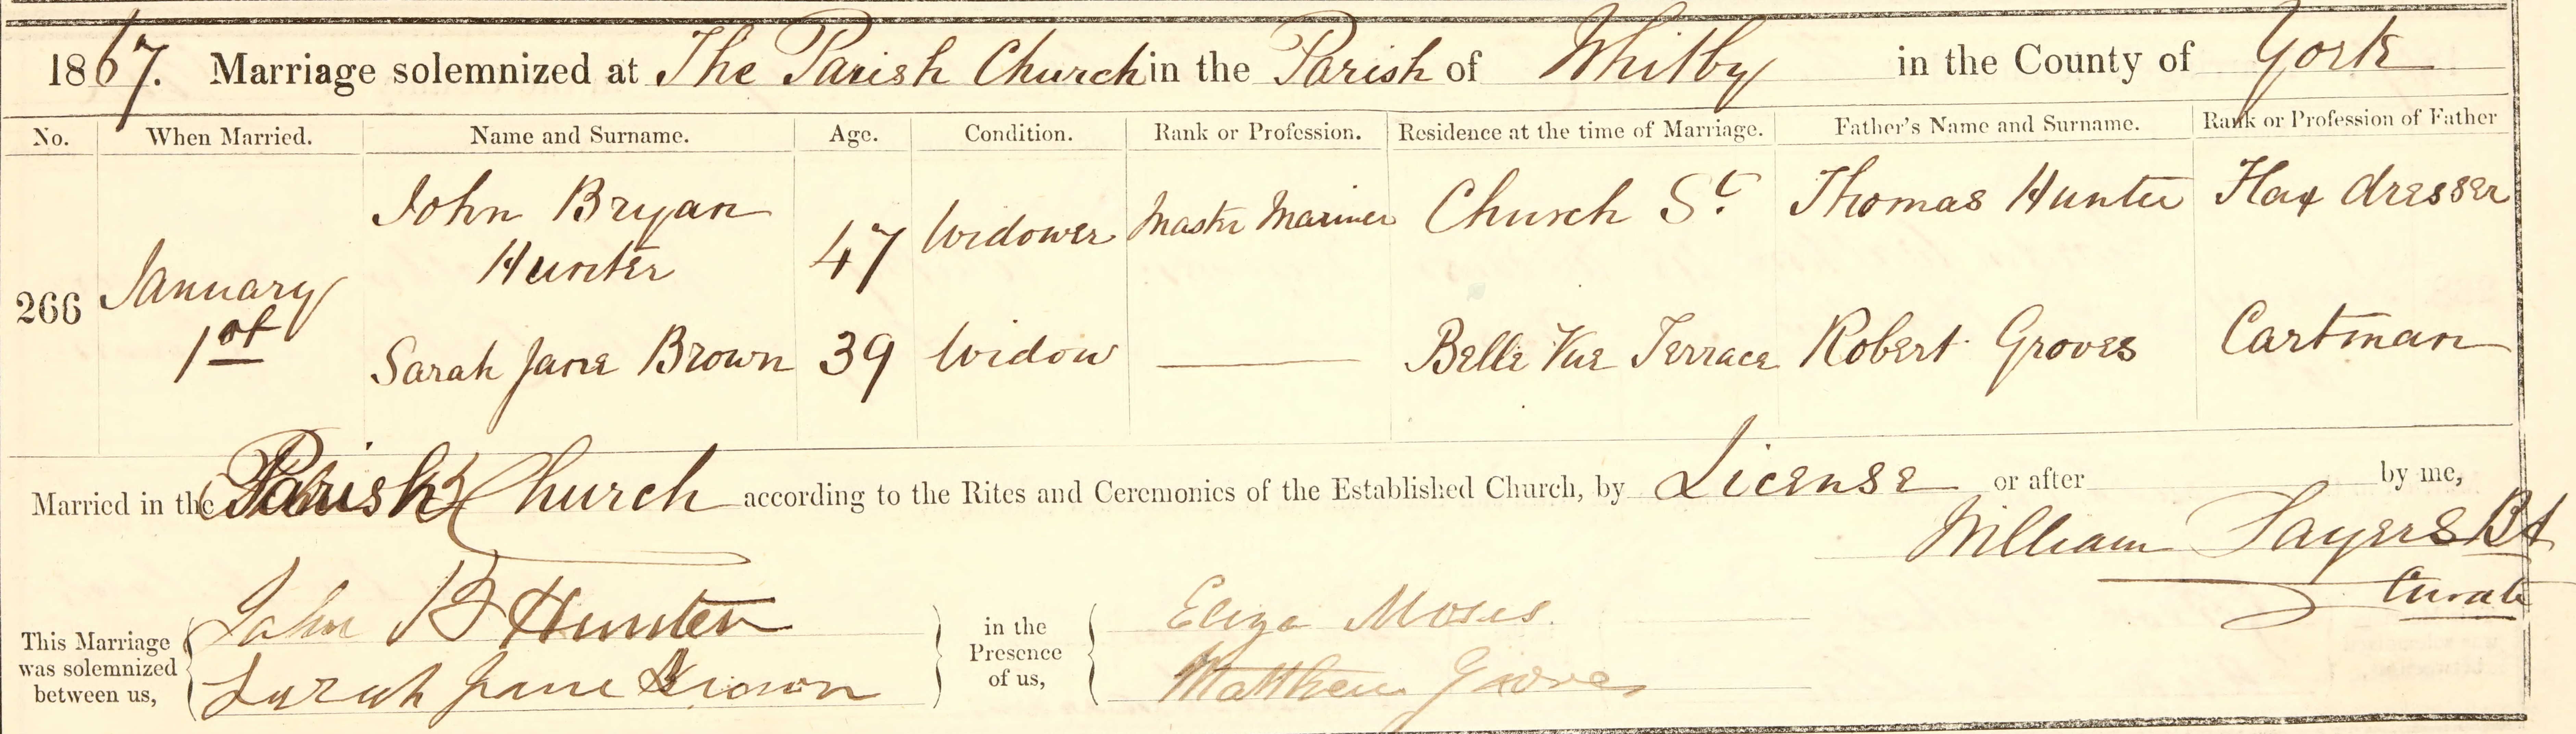 1867. Marriage solemnized at The Parish Church in the Parish of Whitby in the County of York
No. When Married. Name and Surname. Age. Condition. Rank or Profession. Residence at the time of Marriage. Father's Name and Surname. Rank or Profession of Father
266 January 1st John Bryan Hunter 47 Widower Master Mariner Church St. Thomas Hunter Flax dresser
Sarah Jane Brown 39 Widow Belle Vue Terrace Robert Groves Cartman
Married in the Parish Church according to the Rites and Ceremonies of the Established Church, by License or after by me,
William Sayers
Curate
This Marriage was solemnized between us, John B Hunter in the Presence of us, Eliza Moses.
Sarah Jane Brown Matthew Groves